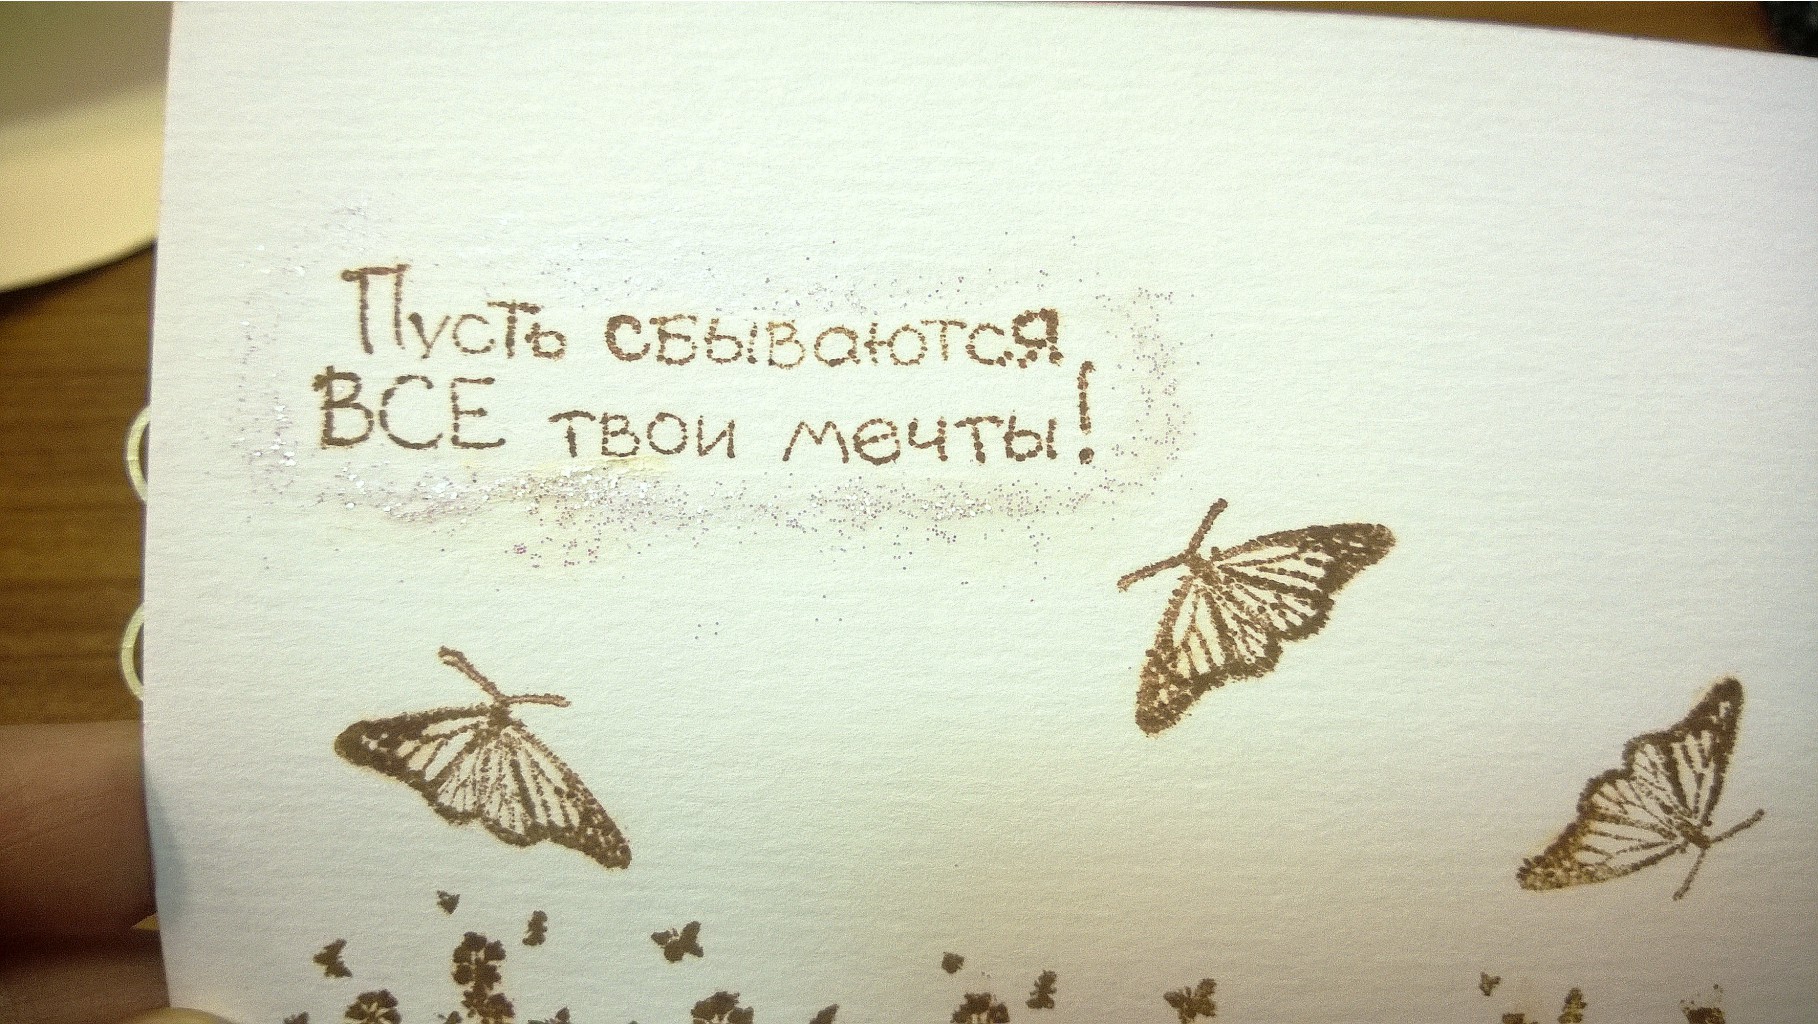 Пусть сбываются
ВСЕ твои мечты!